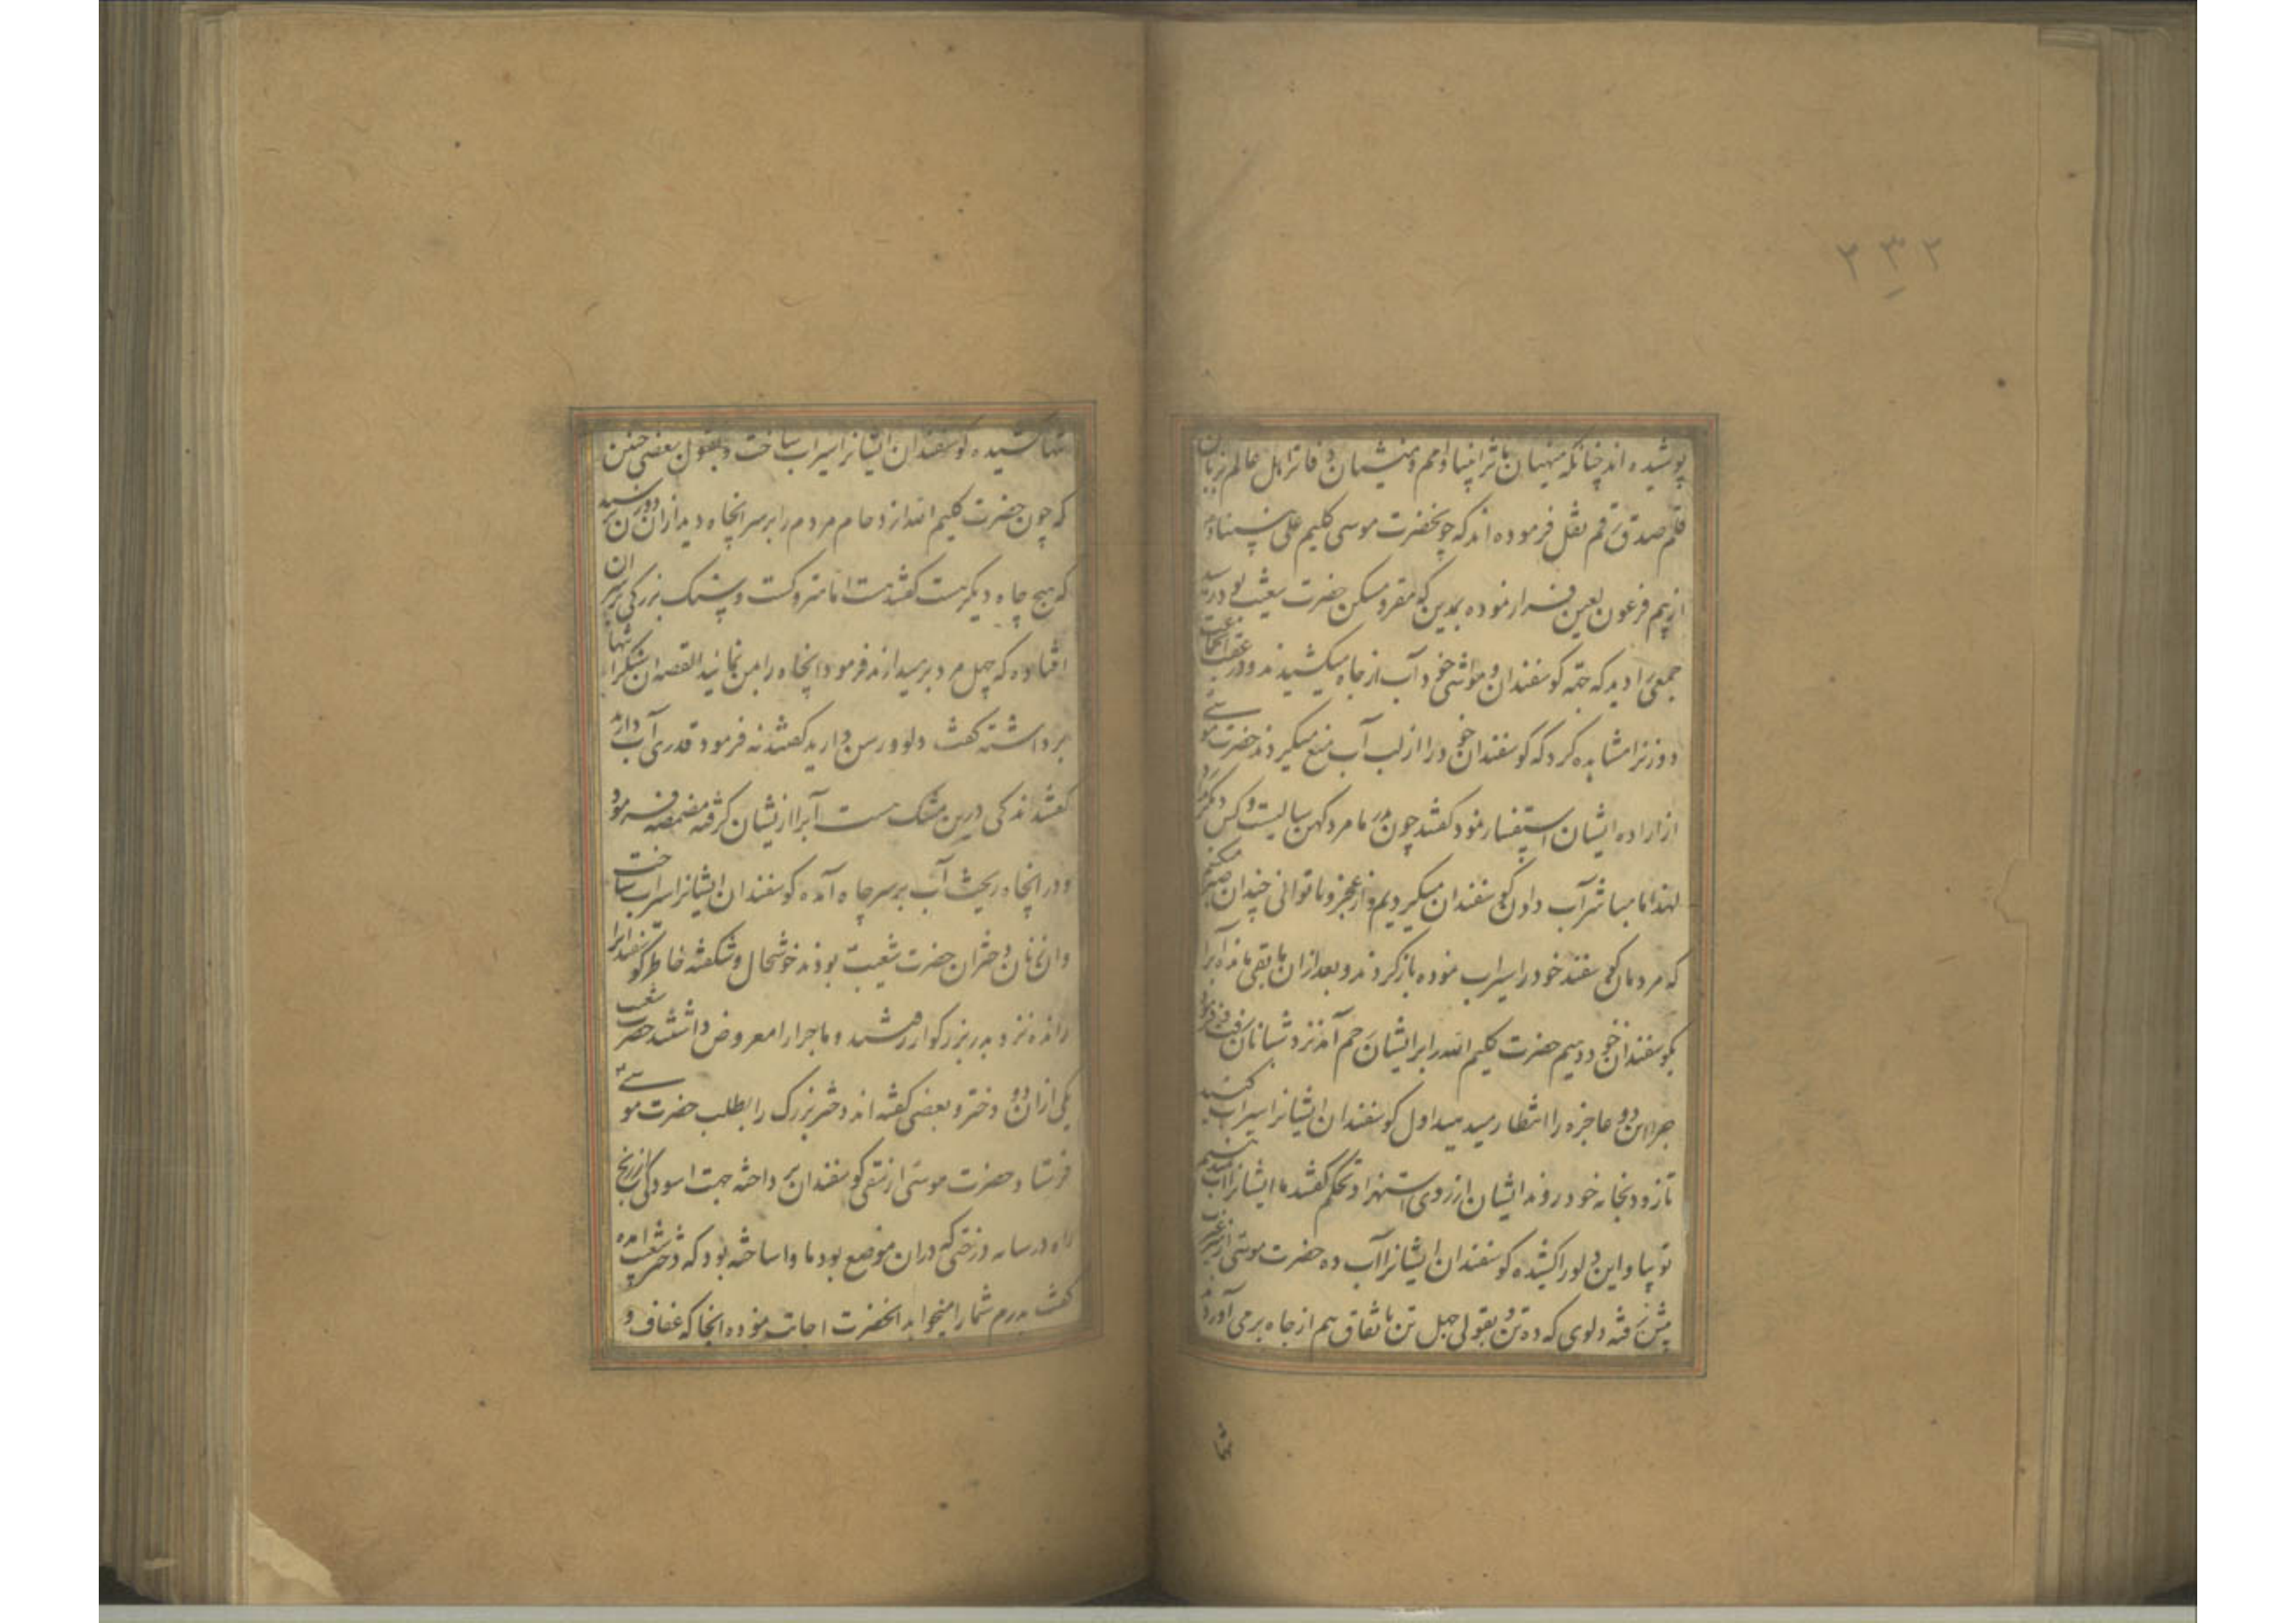 ۲۳۲
پوشیده اند چنانکه منهیان مآثر انبیا و امم و منشیان دفاتر اهل عالم بزبان
قلم صدق رقم نقل فرموده اند که چون حضرت موسی کلیم علی نبینا و
از بیم فرعون لعین فرار نموده بمدین که مقر و مسکن حضرت شعیب بود رسید
جمعی را دید که جهة کوسفندان و مواشی خود آب از چاه میکشیدند و در عقب انجماعت
دو زنرا مشاهده کرد که کوسفندان خود را از لب آب منع میکردند حضرت موسی
از اراده ایشان استفسار نمود کفتند چون پدر ما مرد کهن سالیست و کس دیکر ندارد
لهذا ما مباشر آب دادن کوسفندان میکردیم و از عجز و ناتوانی چندان صبر میکنیم
که مردمان کوسفند خود را سیراب نموده باز کردند و بعد از ان مابقی مانده آبرا
بکوسفندان خود دهیم حضرت کلیم الله را بر ایشان رحم آمد نزد شبانان رفته فرمود
چرا این دو عاجزه را انتظار میدهید اول کوسفندان ایشانرا سیراب کنید
تا زود بخانه خود روند ایشان از روی استهزا و تحکم کفتند ما ایشانرا آب نمیدهیم
تو بیا و این دلو را کشیده کوسفندان ایشانرا آب ده حضرت موسی از غیرت
پیش رفته دلوی که ده تن و بقولی چهل تن باتفاق هم از چاه بر می آوردند
تنها
تنها کشیده کوسفندان ایشانرا سیراب ساخت و بقول بعضی چنین
که چون حضرت کلیم الله ازدحام مردم را بر سر انچاه دید از ان دو زن پرسید
که هیچ چاه دیکر هست کفتند هست اما متروکست و سنک بزرکی بر سر ان
افتاده که چهل مرد بر میدارند فرمود انچاه را بمن نمایید القصه ان سنکرا تنها
برداشته کفت دلو و رسن دارید کفتند نه فرمود قدری آب دارید
کفتند اندکی درین مشک هست آبرا از یشان کرفته مضمضه فرمود
و در انچاه ریخت آب بر سر چاه آمده کوسفندان ایشانرا سیراب ساخت
و ان زنان دختران حضرت شعیب بودند خوشحال و شکفته خاطر کوسفندانرا
رانده نزد پدر بزرکوار رفتند و ماجرا را معروض داشتند حضرت شعیب
یکی از ان دو دختر و بعضی کفته اند دختر بزرک را بطلب حضرت موسی
فرستاد حضرت موسی از سقی کوسفندان پرداخته جهت اسودکی از رنج
راه در سایه درختی که دران موضع بود ماوا ساخته بود که دختر شعیب آمده
کفت پدرم شما را میخواهد انحضرت اجابت نموده انجا که عفاف و